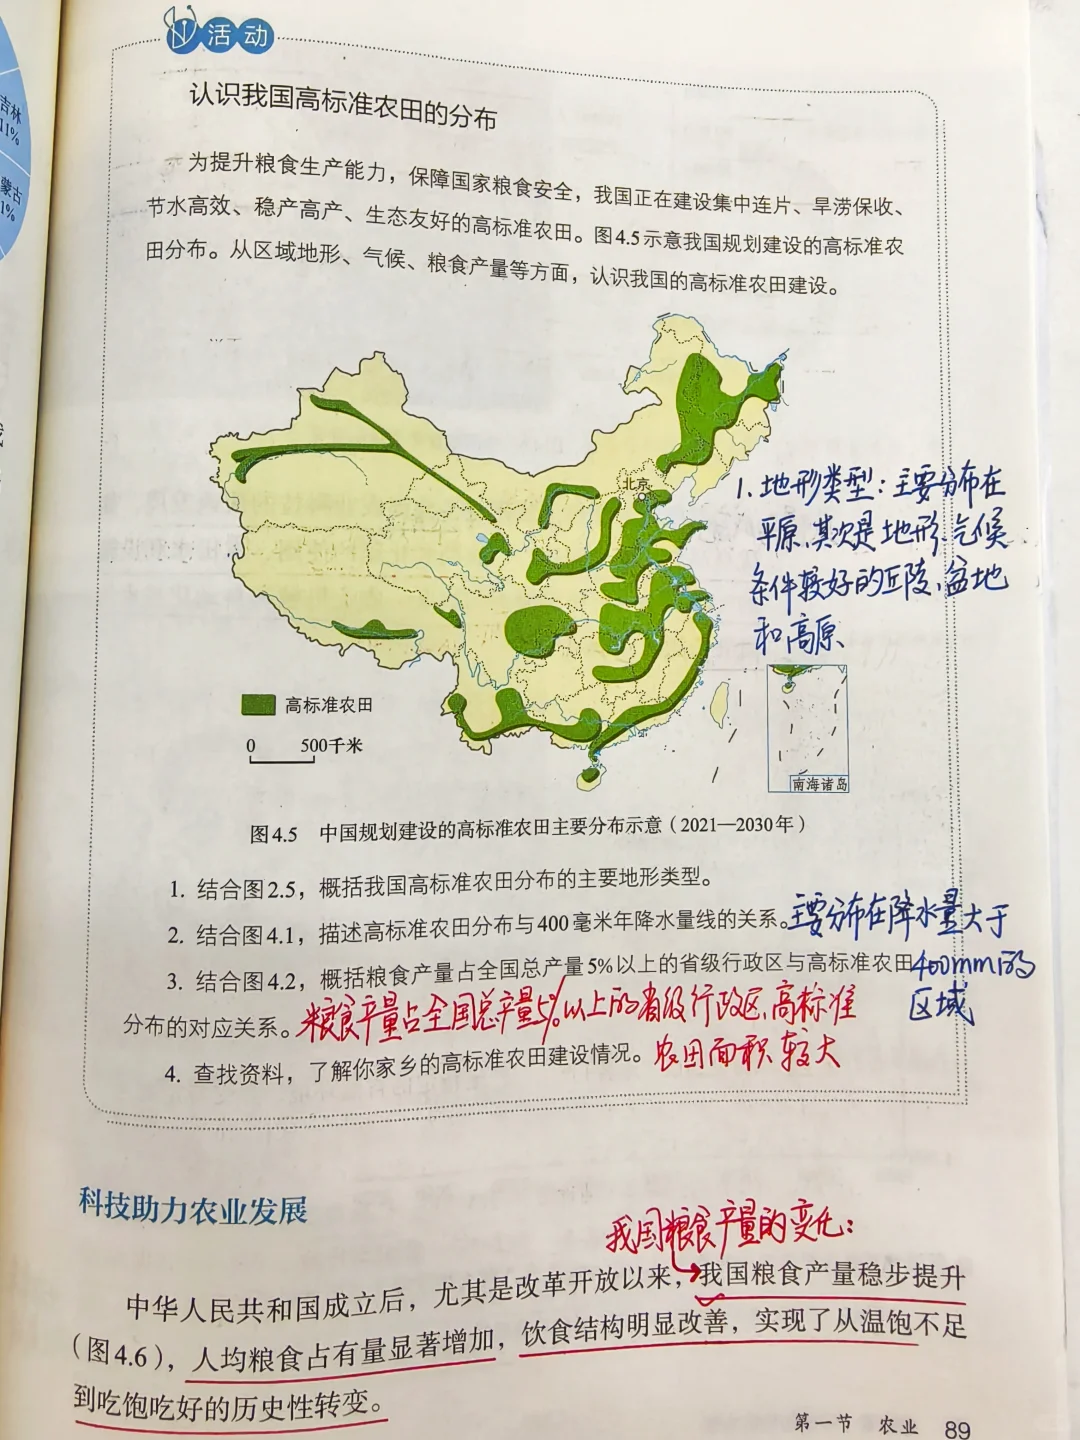 吉林
11%
蒙古
1%
活动
认识我国高标准农田的分布
为提升粮食生产能力，保障国家粮食安全，我国正在建设集中连片、旱涝保收、
节水高效、稳产高产、生态友好的高标准农田。图4.5示意我国规划建设的高标准农
田分布。从区域地形、气候、粮食产量等方面，认识我国的高标准农田建设。
北京
1. 地形类型：主要分布在
平原、其次是地形、气候
条件较好的丘陵、盆地
和高原
高标准农田
0 500千米
南海诸岛
图4.5 中国规划建设的高标准农田主要分布示意（2021—2030年）
1. 结合图2.5，概括我国高标准农田分布的主要地形类型。
2. 结合图4.1，描述高标准农田分布与400毫米年降水量线的关系。
主要分布在降水量大于
400mm的
区域
3. 结合图4.2，概括粮食产量占全国总产量5%以上的省级行政区与高标准农田
分布的对应关系。
粮食产量占全国总产量5%以上的省级行政区，高标准
农田面积较大
4. 查找资料，了解你家乡的高标准农田建设情况。
科技助力农业发展
我国粮食产量的变化：
中华人民共和国成立后，尤其是改革开放以来，我国粮食产量稳步提升
（图4.6），人均粮食占有量显著增加，饮食结构明显改善，实现了从温饱不足
到吃饱吃好的历史性转变。
第一节 农业 89